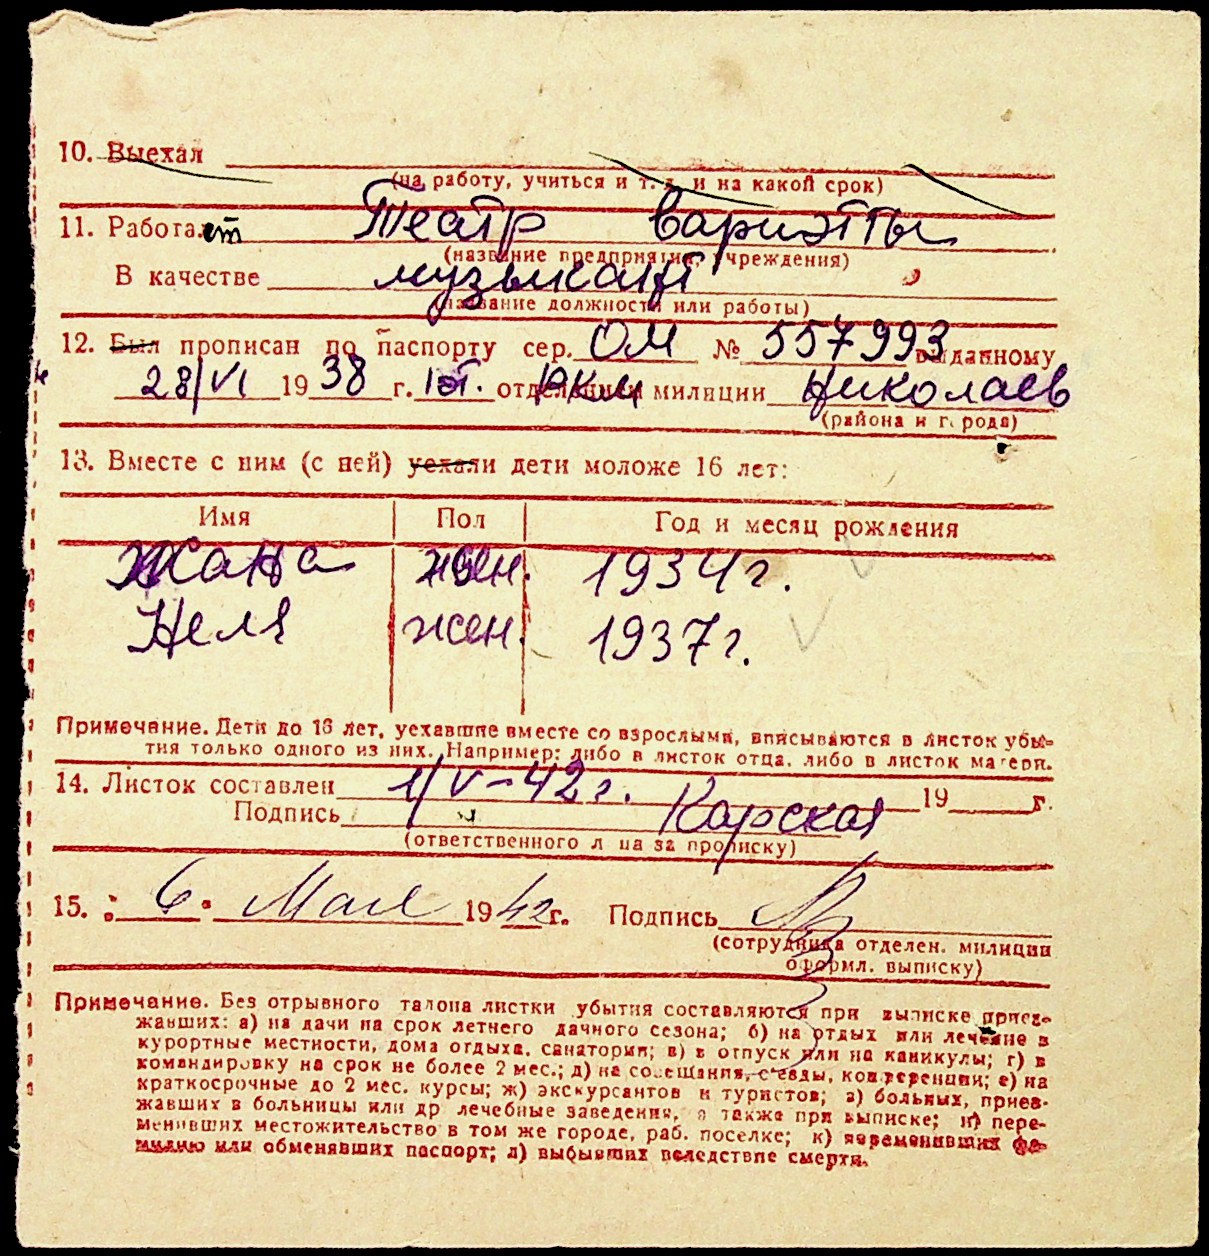 10. Выехал
(на работу, учиться и т. д. и на какой срок)
11. Работает Театр вариэтты
(название предприятия, учреждения)
В качестве музыкант
(название должности или работы)
12. Был прописан по паспорту сер. ОМ № 557993 выданному
28/VI 1938 г. 1 от. отделением РКМ милиции Николаев
(района и города)
13. Вместе с ним (с ней) уехали дети моложе 16 лет:
Имя Пол Год и месяц рождения
Жана жен. 1934 г.
Неля жен. 1937 г.
Примечание. Дети до 16 лет, уехавшие вместе со взрослыми, вписываются в листок убы-
тия только одного из них. Например: либо в листок отца, либо в листок матери.
14. Листок составлен 1/V-42 г. 19 г.
Подпись Карская
(ответственного лица за прописку)
15. " 6 " Мая 1942 г. Подпись
(сотрудника отделен. милиции
оформл. выписку)
Примечание. Без отрывного талона листки убытия составляются при выписке приез-
жавших: а) на дачи на срок летнего дачного сезона; б) на отдых или лечение в
курортные местности, дома отдыха, санатории; в) в отпуск или на каникулы; г) в
командировку на срок не более 2 мес.; д) на совещания, съезды, конференции; е) на
краткосрочные до 2 мес. курсы; ж) экскурсантов и туристов; з) больных, приез-
жавших в больницы или др лечебные заведения, а также при выписке; и) пере-
менивших местожительство в том же городе, раб. поселке; к) переменивших фа-
милию или обменявших паспорт; л) выбывших вследствие смерти.